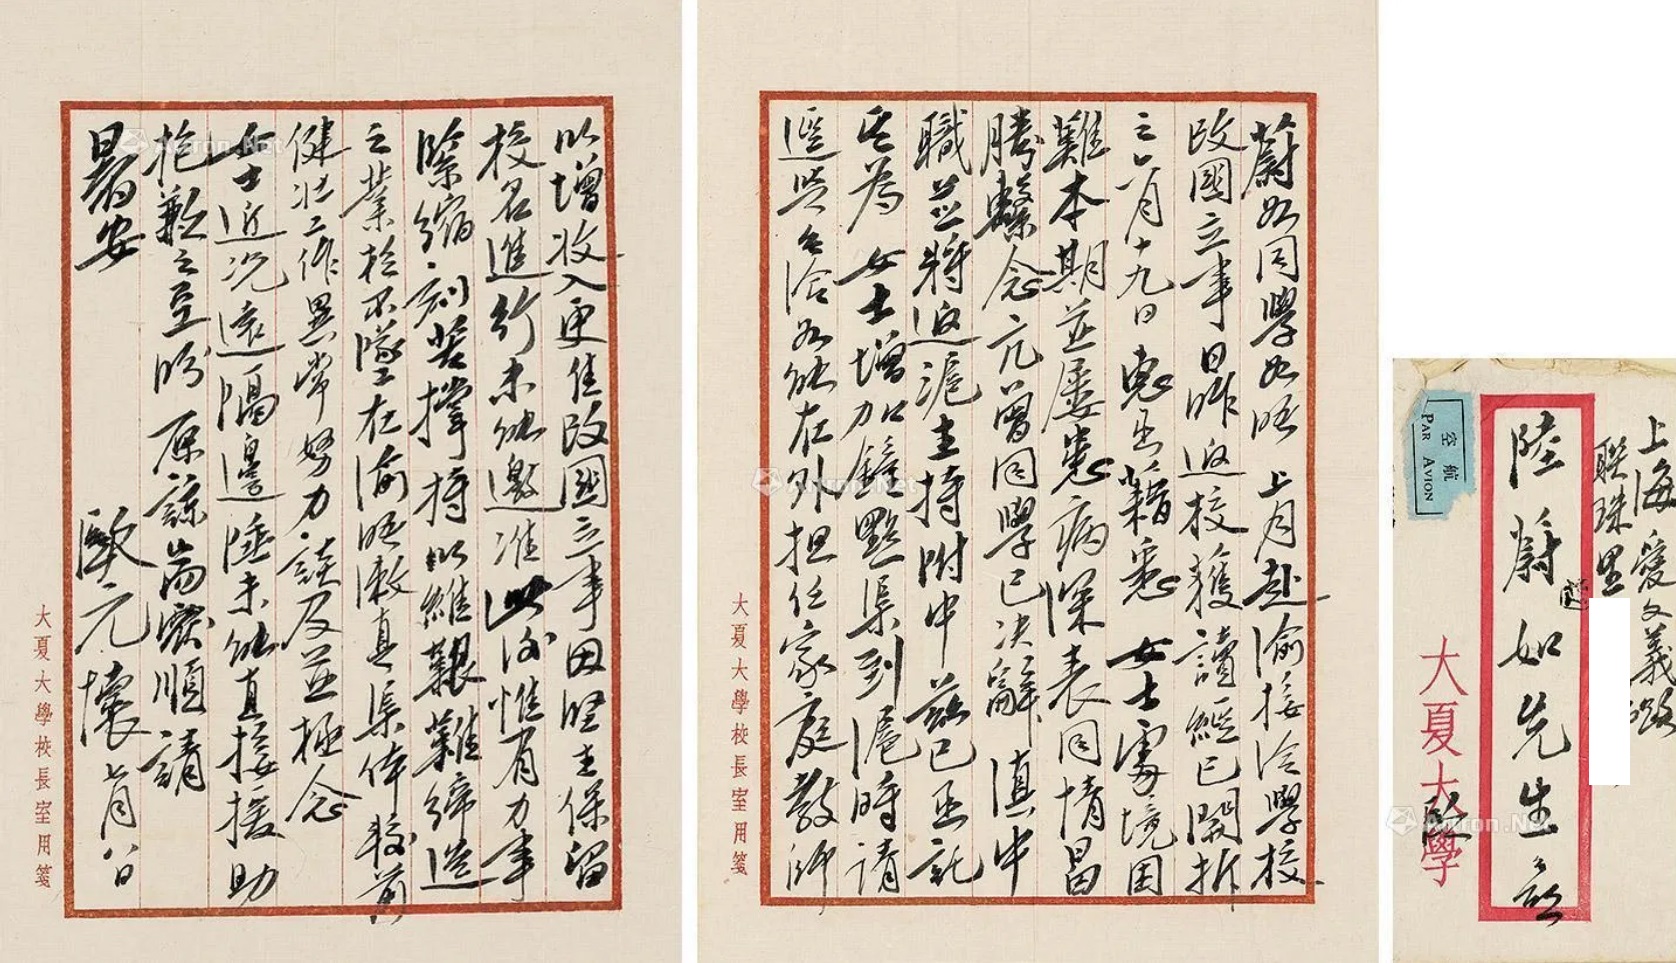 蔚如同學如晤 上月赴渝接洽學校
改國立事日昨返校獲讀經已開拆
之六月十九日惠函藉悉 女士處境困
難本期並屢患病深表同情昌
勝繫念亢曾同學已決辭滇中
職並將返滬主持附中茲已函託
為 女士增加鐘點渠到滬時請
逕與洽如能在外担任家庭教師
以增收入更佳改國立事因堅主保留
校名進行未能邀准此後惟有力事
緊縮刻苦撐持以維艱難締造
之業於不墜在渝晤漱真渠体較前
健壯工作異常努力談及並極念
女士近况遠隔邊陲未能直接援助
抱歉之至盼 原諒耑覆順請
暑安
歐元懷 七月八日
大夏大學校長室用箋
大夏大學校長室用箋
上海愛文義路
聯珠里
陸蔚如先生
大夏大學
空航
PAR AVION
Artron.Net